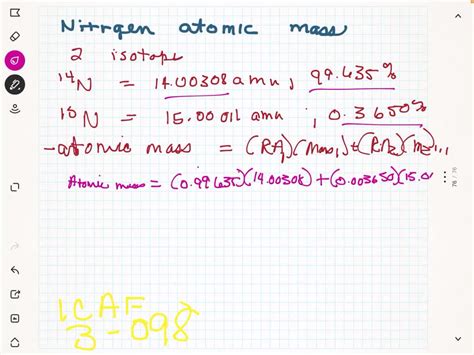 Nitrogen atomic mass
2 isotope
¹⁴N = 14.00308 amu, 99.635%
¹⁵N = 15.00011 amu, 0.3650%
-atomic mass = (RA₁)(mass₁)+(RA₂)(m₂)...
Atomic mass = (0.99635)(14.00308)+(0.003650)(15.0
76 / 76
1CAF
3-098